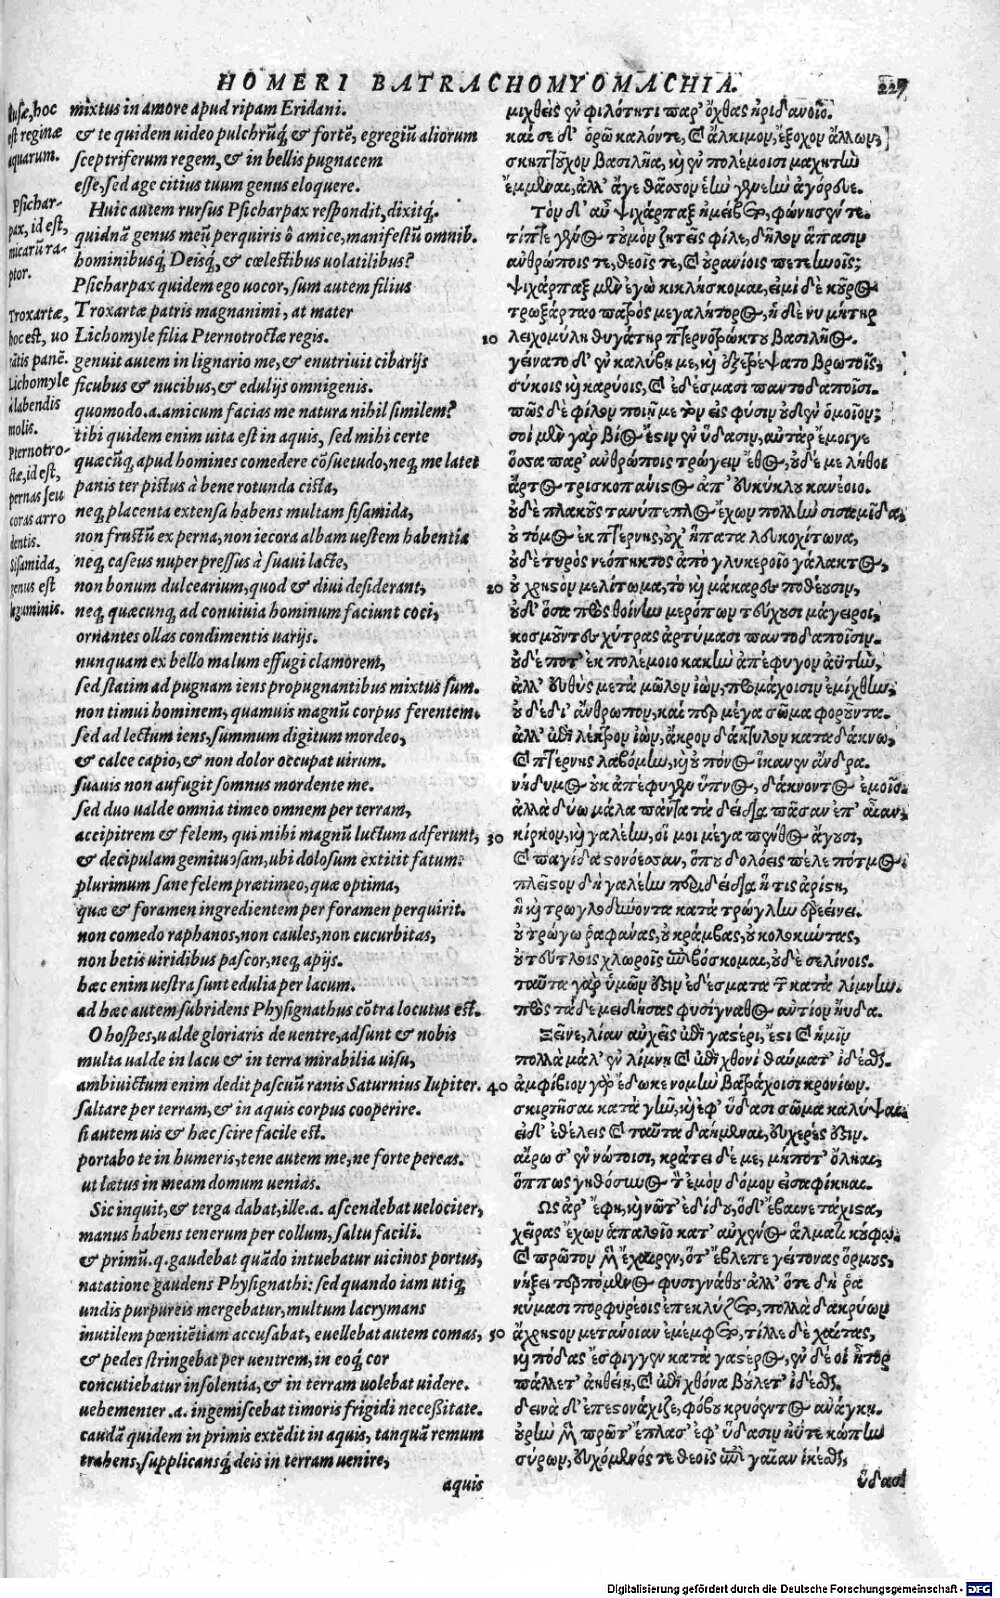 HOMERI BATRACHOMYOMACHIA. 227
usæ, hoc
est reginæ
aquarum.
Psichar-
pax, id est,
micarũ ra-
ptor.
Troxartæ,
hoc est, uo
ratis panẽ.
Lichomyle
à labendis
molis.
Pternotro-
ctæ, id est,
pernas seu
coras arro
dentis.
Sisamida,
genus est
leguminis.
mixtus in amore apud ripam Eridani.
& te quidem uideo pulchrũq́; & fortẽ, egregiũ aliorum
sceptriferum regem, & in bellis pugnacem
esse, sed age citius tuum genus eloquere.
Huic autem rursus Psicharpax respondit, dixitq́;.
quidnã genus meũ perquiris ô amice, manifestũ omnib.
hominibusq́; Deisq́;, & cœlestibus uolatilibus?
Psicharpax quidem ego uocor, sum autem filius
Troxartæ patris magnanimi, at mater
Lichomyle filia Pternotroctæ regis.
genuit autem in lignario me, & enutriuit cibarijs
ficubus & nucibus, & edulijs omnigenis.
quomodo .a. amicum facias me natura nihil similem?
tibi quidem enim uita est in aquis, sed mihi certe
quæcũq; apud homines comedere cõsuetudo, neq; me latet
panis ter pistus à bene rotunda cista,
neq; placenta extensa habens multam sisamida,
non frustũ ex perna, non iecora albam uestem habentia
neq; caseus nuper pressus à suaui lacte,
non bonum dulcearium, quod & diui desiderant,
neq; quæcunq; ad conuiuia hominum faciunt coci,
ornantes ollas condimentis uarijs.
nunquam ex bello malum effugi clamorem,
sed statim ad pugnam iens propugnantibus mixtus sum.
non timui hominem, quamuis magnũ corpus ferentem.
sed ad lectum iens, summum digitum mordeo,
& calce capio, & non dolor occupat uirum.
suauis non aufugit somnus mordente me.
sed duo ualde omnia timeo omnem per terram,
accipitrem & felem, qui mihi magnũ luctum adferunt,
& decipulam gemituosam, ubi dolosum extitit fatum:
plurimum sane felem prætimeo, quæ optima,
quæ & foramen ingredientem per foramen perquirit.
non comedo raphanos, non caules, non cucurbitas,
non betis uiridibus pascor, neq; apijs.
hæc enim uestra sunt edulia per lacum.
ad hæc autem subridens Physignathus cõtra locutus est.
O hospes, ualde gloriaris de uentre, adsunt & nobis
multa ualde in lacu & in terra mirabilia uisu,
ambiuictum enim dedit pascuũ ranis Saturnius Iupiter.
saltare per terram, & in aquis corpus cooperire.
si autem uis & hæc scire facile est.
portabo te in humeris, tene autem me, ne forte pereas.
ut lætus in meam domum uenias.
Sic inquit, & terga dabat, ille .a. ascendebat uelociter,
manus habens tenerum per collum, saltu facili.
& primũ .q. gaudebat quãdo intuebatur uicinos portus,
natatione gaudens Physignathi: sed quando iam utiq;
undis purpureis mergebatur, multum lacrymans
inutilem pœnitẽtiam accusabat, euellebat autem comas,
& pedes stringebat per uentrem, in eoq́; cor
concutiebatur insolentia, & in terram uolebat uidere.
uehementer .a. ingemiscebat timoris frigidi necessitate.
caudã quidem in primis extẽdit in aquis, tanquã remum
trahens, supplicansq́; deis in terram uenire,
aquis
μιχθεὶς ἐν φιλότητι παρ' ὄχθας ἠριδανοῖο.
καὶ σε δ' ὁρῶ καλόντε, καὶ ἄλκιμον, ἔξοχον ἄλλων,
σκηπτοῦχον βασιλῆα, καὶ ἐν πολέμοισι μαχητὴν
ἔμμεναι, ἀλλ' ἄγε θᾶσσον ἑὴν γενεὴν ἀγόρευε.
Τὸν δ' αὖ ψιχάρπαξ ἠμείβετο, φώνησέν τε.
τίπτε γένος τὸ μὸν ζητεῖς φίλε, δῆλον ἅπασιν
ἀνθρώποις τε, θεοῖς τε, καὶ οὐρανίοις πετεηνοῖς;
ψιχάρπαξ μὲν ἐγὼ κικλήσκομαι, εἰμὶ δὲ κοῦρος
τρωξάρταο πατρὸς μεγαλήτορος, ἡ δέ νυ μήτηρ
10 λειχομύλη θυγάτηρ πτερνοτρώκτου βασιλῆος.
γείνατο δ' ἐν καλύβῃ με, καὶ ἐξεθρέψατο βρωτοῖς,
σύκοις καὶ καρύοις, καὶ ἐδέσμασι παντοδαποῖσι.
πῶς δὲ φίλον ποιῇ με τὸν εἰς φύσιν οὐδὲν ὁμοῖον;
σοὶ μὲν γὰρ βίος ἐστὶν ἐν ὕδασιν, αὐτὰρ ἔμοιγε
ὅσσα παρ' ἀνθρώποις τρώγειν ἔθος, οὐδέ με λήθει
ἄρτος τρισκοπάνιστος ἀπ' εὐκύκλου κανέοιο.
οὐδὲ πλακοῦς τανύπεπλος ἔχων πολλὴν σισαμίδα,
οὐ τόμος ἐκ πτέρνης, οὐχ' ἥπατα λευκοχίτωνα,
οὐδὲ τυρὸς νεόπηκτος ἀπὸ γλυκεροῖο γάλακτος,
20 οὐ χρηστὸν μελίτωμα, τὸ καὶ μάκαρες ποθέουσιν,
οὐδ' ὅσα πρὸς θοίνην μερόπων τεύχουσι μάγειροι,
κοσμοῦντες χύτρας ἀρτύμασι παντοδαποῖσιν.
οὐδέ ποτ' ἐκ πολέμοιο κακὴν ἀπέφυγον ἀϋτὴν,
ἀλλ' εὐθὺς μετὰ μῶλον ἰὼν, προμάχοισιν ἐμίχθην,
οὐ δέδι' ἄνθρωπον, καί περ μέγα σῶμα φοροῦντα.
ἀλλ' ἐπὶ λέκτρον ἰὼν, ἄκρον δάκτυλον κατὰ δάκνω,
καὶ πτέρνης λαβόμην, καὶ οὐ πόνος ἵκανεν ἄνδρα.
νήδυμος οὐκ ἀπέφυγεν ὕπνος, δάκνοντος ἐμοῖο.
ἀλλὰ δύω μάλα πάντα τὰ δείδια πᾶσαν ἐπ' αἶαν,
30 κίρκον, καὶ γαλέην, οἵ μοι μέγα πένθος ἄγουσι,
καὶ παγίδα στονόεσσαν, ὅπου δολόεις πέλε πότμος.
πλεῖστον δὴ γαλέην περιδείδια ἥ τις ἀρίστη,
ἣ καὶ τρωγλοδύνοντα κατὰ τρώγλην ἐρεείνει.
οὐ τρώγω ῥαφάνας, οὐ κράμβας, οὐ κολοκύντας,
οὐ τεύτλοις χλωροῖς ἐπιβόσκομαι, οὐδὲ σελίνοις.
ταῦτα γὰρ ὑμῶν ἐστιν ἐδέσματα τῶν κατὰ λίμνην.
πρὸς τάδε μειδήσας φυσίγναθος ἀντίον ηὔδα.
Ξεῖνε, λίαν αὐχεῖς ἐπὶ γαστέρι, ἔστι καὶ ἡμῖν
πολλὰ μάλ' ἐν λίμνῃ καὶ ἐπὶ χθονὶ θαύματ' ἰδέσθαι.
40 ἀμφίβιον γὰρ ἔδωκε νομὴν βατράχοισι κρονίων.
σκιρτῆσαι κατὰ γῆν, καὶ ἐφ' ὕδασι σῶμα καλύψαι,
εἰ δ' ἐθέλεις καὶ ταῦτα δαήμεναι, εὐχερές ἐστιν.
αἴρω σ' ἐν νώτοισι, κράτει δέ με, μήποτ' ὄληαι,
ὅππως γηθόσυνος τὸν ἐμὸν δόμον εἰσαφίκηαι.
Ὣς ἄρ' ἔφη, καὶ νῶτ' ἐδίδου, ὁ δ' ἔβαινε τάχιστα,
χεῖρας ἔχων ἁπαλοῖο κατ' αὐχένος ἅλματι κούφῳ.
καὶ πρῶτον μὲν ἔχαιρεν, ὅτ' ἔβλεπε γείτονας ὅρμους,
νήξει τερπόμενος φυσιγνάθου· ἀλλ' ὅτε δή ῥα
κύμασι πορφυρέοις ἐπεκλύζετο, πολλὰ δακρύων
50 ἄχρηστον μετάνοιαν ἐμέμφετο, τίλλε δὲ χαίτας,
καὶ πόδας ἔσφιγγεν κατὰ γαστέρος, ἐν δέ οἱ ἦτορ
πάλλετ' ἀηθείῃ, καὶ ἐπὶ χθόνα βούλετ' ἰδέσθαι.
δεινὰ δ' ἐπεστονάχιζε, φόβου κρυόεντος ἀνάγκῃ.
οὐρὴν μὲν πρῶτ' ἔπλασ' ἐφ' ὕδασιν ἠΰτε κώπην
σύρων, εὐχόμενός τε θεοῖς ἐπὶ γαῖαν ἱκέσθαι,
ὕδασι
Digitalisierung gefördert durch die Deutsche Forschungsgemeinschaft - DFG